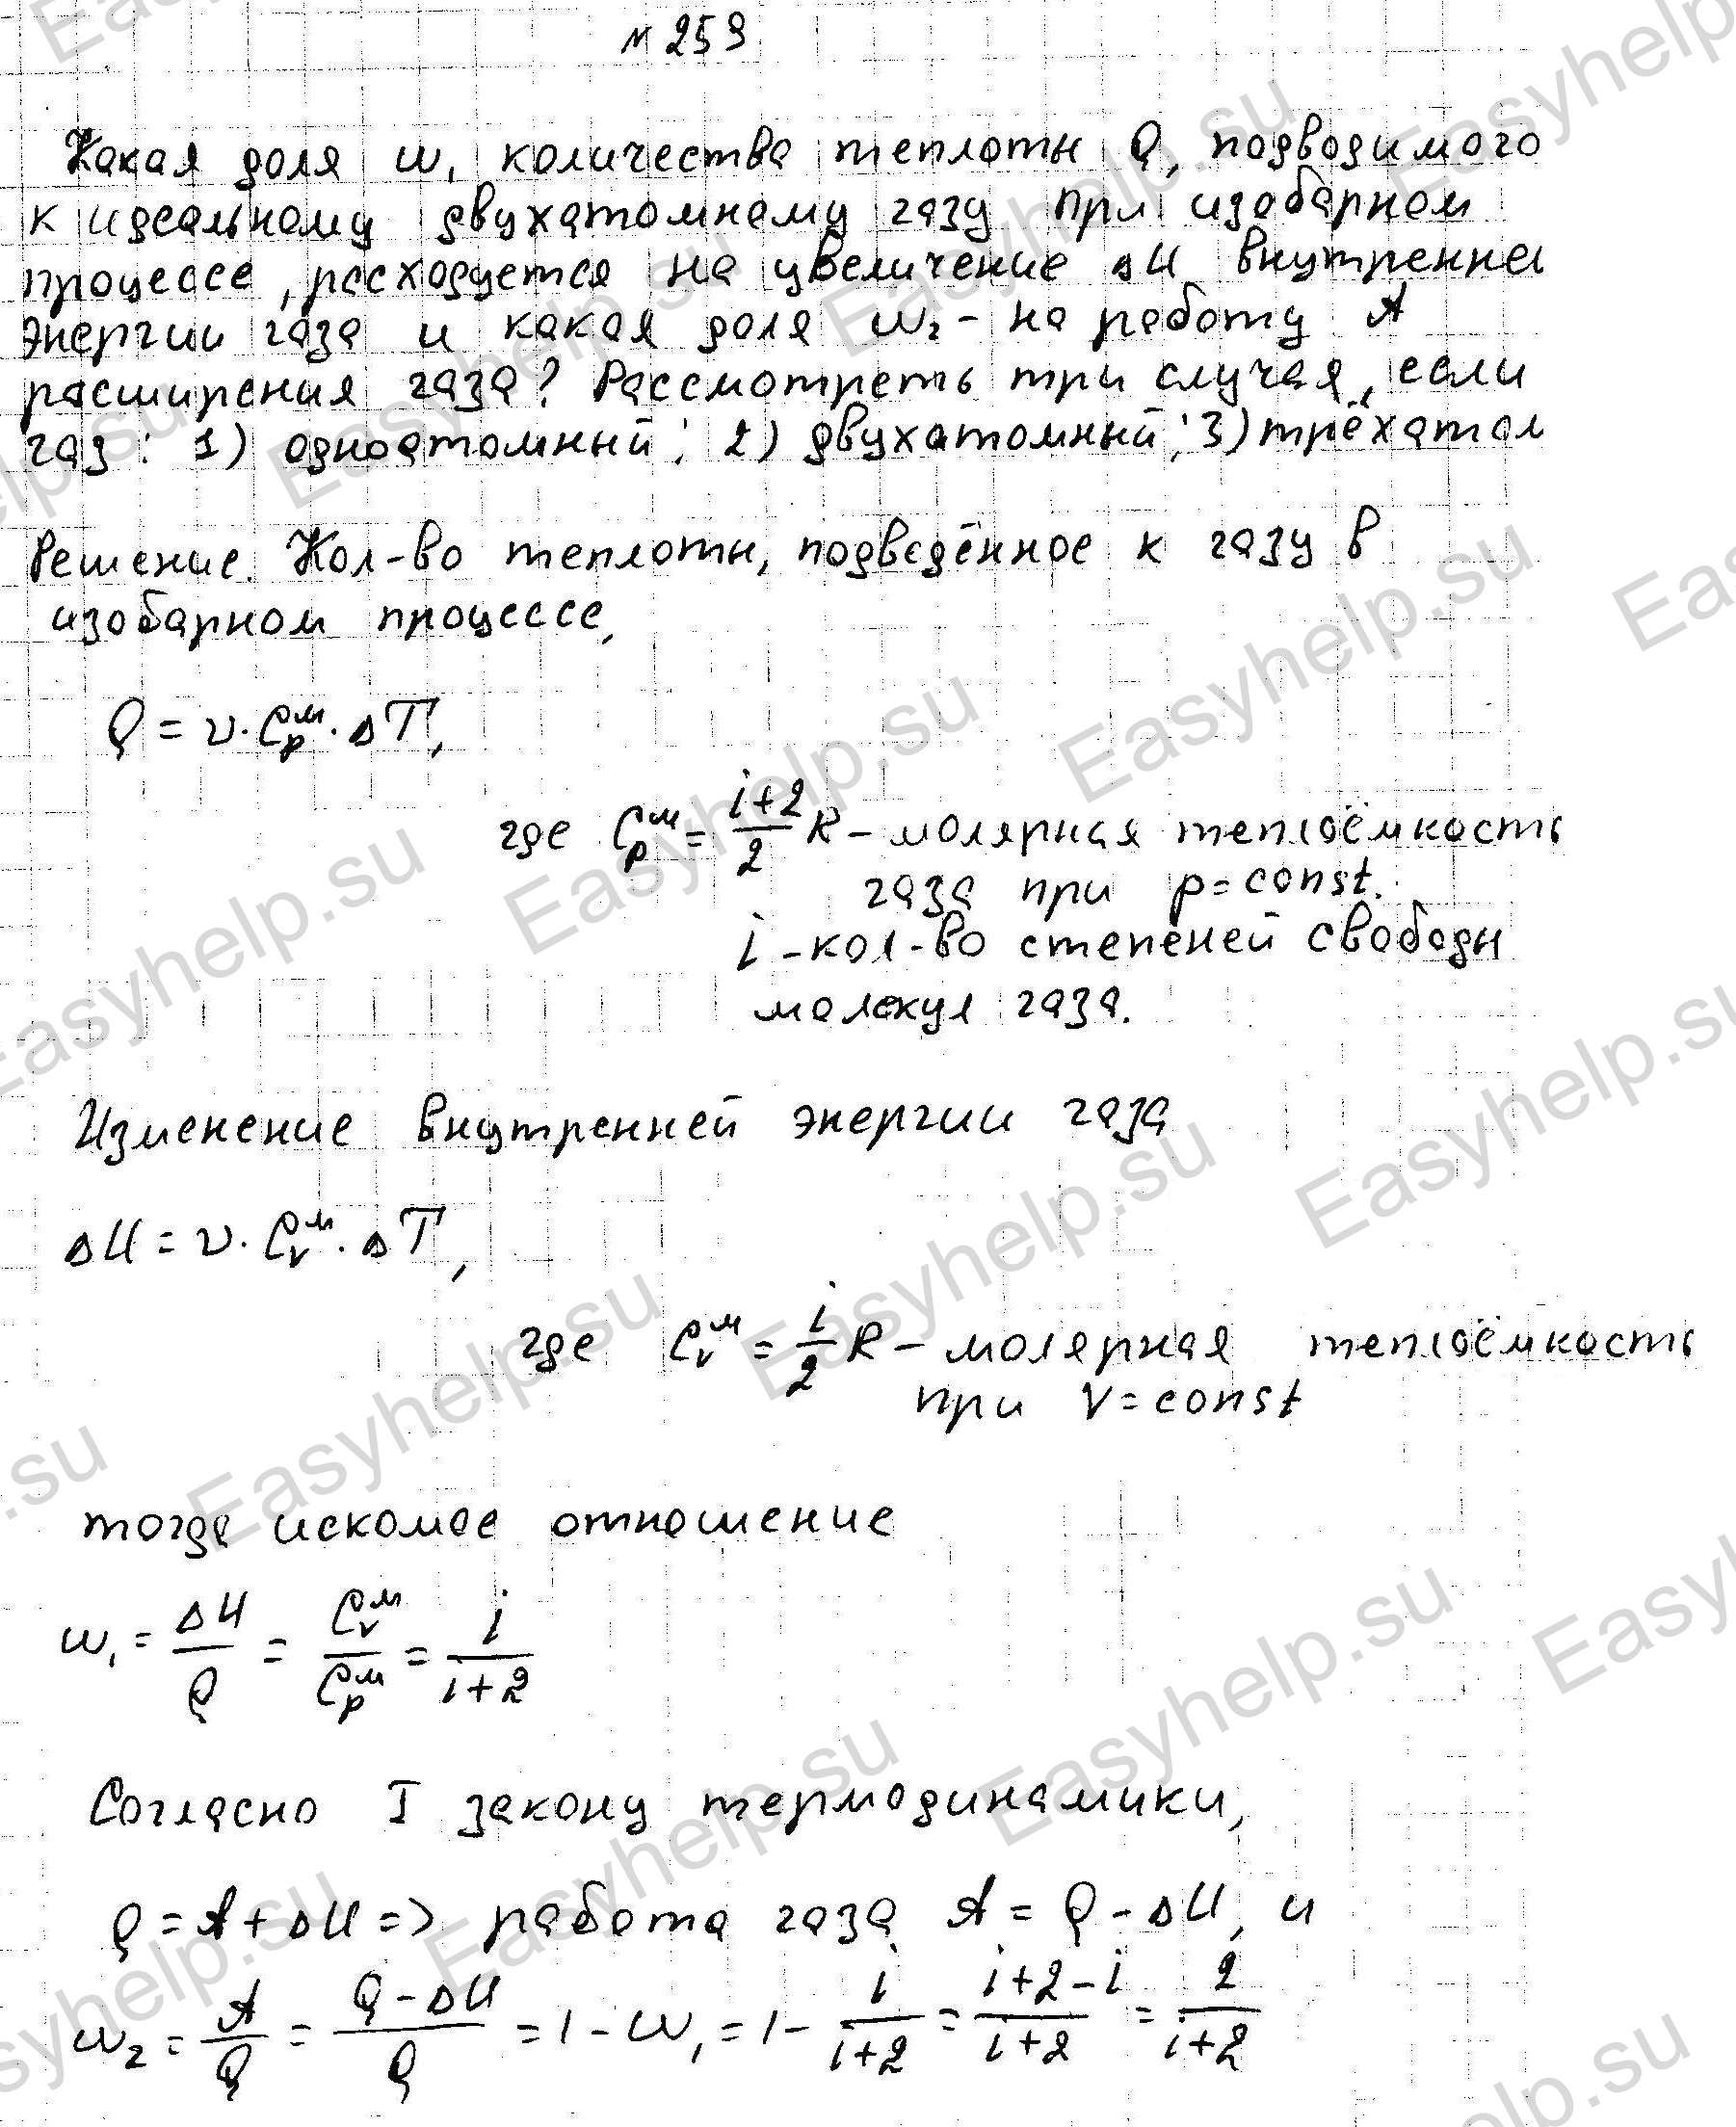 № 259
Какая доля w₁ количества теплоты Q, подводимого
к идеальному двухатомному газу при изобарном
процессе, расходуется на увеличение ΔU внутренне
энергии газа и какая доля w₂ - на работу A
расширения газа? Рассмотреть три случая, если
газ: 1) одноатомный; 2) двухатомный; 3) трёхатом
Решение. Кол-во теплоты, подведённое к газу в
изобарном процессе,
Q = ν · Cₚᵐ · ΔT,
где Cₚᵐ = (i+2)/2 R – молярная теплоёмкость
газа при p = const.
i - кол-во степеней свободы
молекул газа.
Изменение внутренней энергии газа
ΔU = ν · Cᵥᵐ · ΔT,
где Cᵥᵐ = i/2 R – молярная теплоёмкость
при V = const
тогда искомое отношение
w₁ = ΔU/Q = Cᵥᵐ/Cₚᵐ = i/(i+2)
Согласно I закону термодинамики,
Q = A + ΔU => работа газа A = Q - ΔU, и
w₂ = A/Q = (Q - ΔU)/Q = 1 - w₁ = 1 - i/(i+2) = (i+2-i)/(i+2) = 2/(i+2)
Easyhelp.su